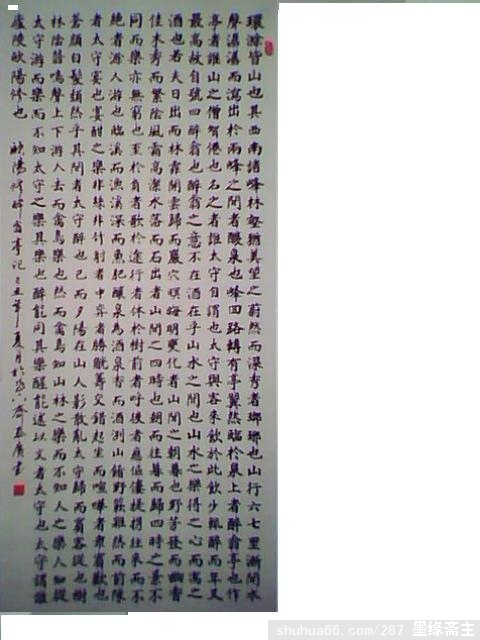 環滁皆山也其西南諸峰林壑猶美望之蔚然而深秀者瑯琊也山行六七里漸聞水
聲潺潺而瀉出於兩峰之間者釀泉也峰回路轉有亭翼然臨於泉上者醉翁亭也作
亭者誰山之僧智僊也名之者誰太守自謂也太守與客來飲於此飲少輒醉而年又
最高故自號曰醉翁也醉翁之意不在酒在乎山水之間也山水之樂得之心而寓之
酒也若夫日出而林霏開雲歸而巖穴暝晦明變化者山間之朝暮也野芳發而幽香
佳木秀而繁陰風霜高潔水落而石出者山間之四時也朝而往暮而歸四時之景不
同而樂亦無窮也至於負者歌於途行者休於樹前者呼後者應傴僂提攜往來而不
絕者滁人游也臨溪而漁溪深而魚肥釀泉為酒泉香而酒洌山餚野蔌雜然而前陳
者太守宴也宴酣之樂非絲非竹射者中弈者勝觥籌交錯起坐而喧嘩者眾賓歡也
蒼顏白髮頹然乎其間者太守醉也已而夕陽在山人影散亂太守歸而賓客從也樹
林陰翳鳴聲上下游人去而禽鳥樂也然而禽鳥知山林之樂而不知人之樂人知從
太守游而樂而不知太守之樂其樂也醉能同其樂醒能述以文者太守也太守謂誰
廬陵歐陽修也
歐陽修醉翁亭記己丑年夏月於齋書
shuhua66.com/287 墨缘斋主